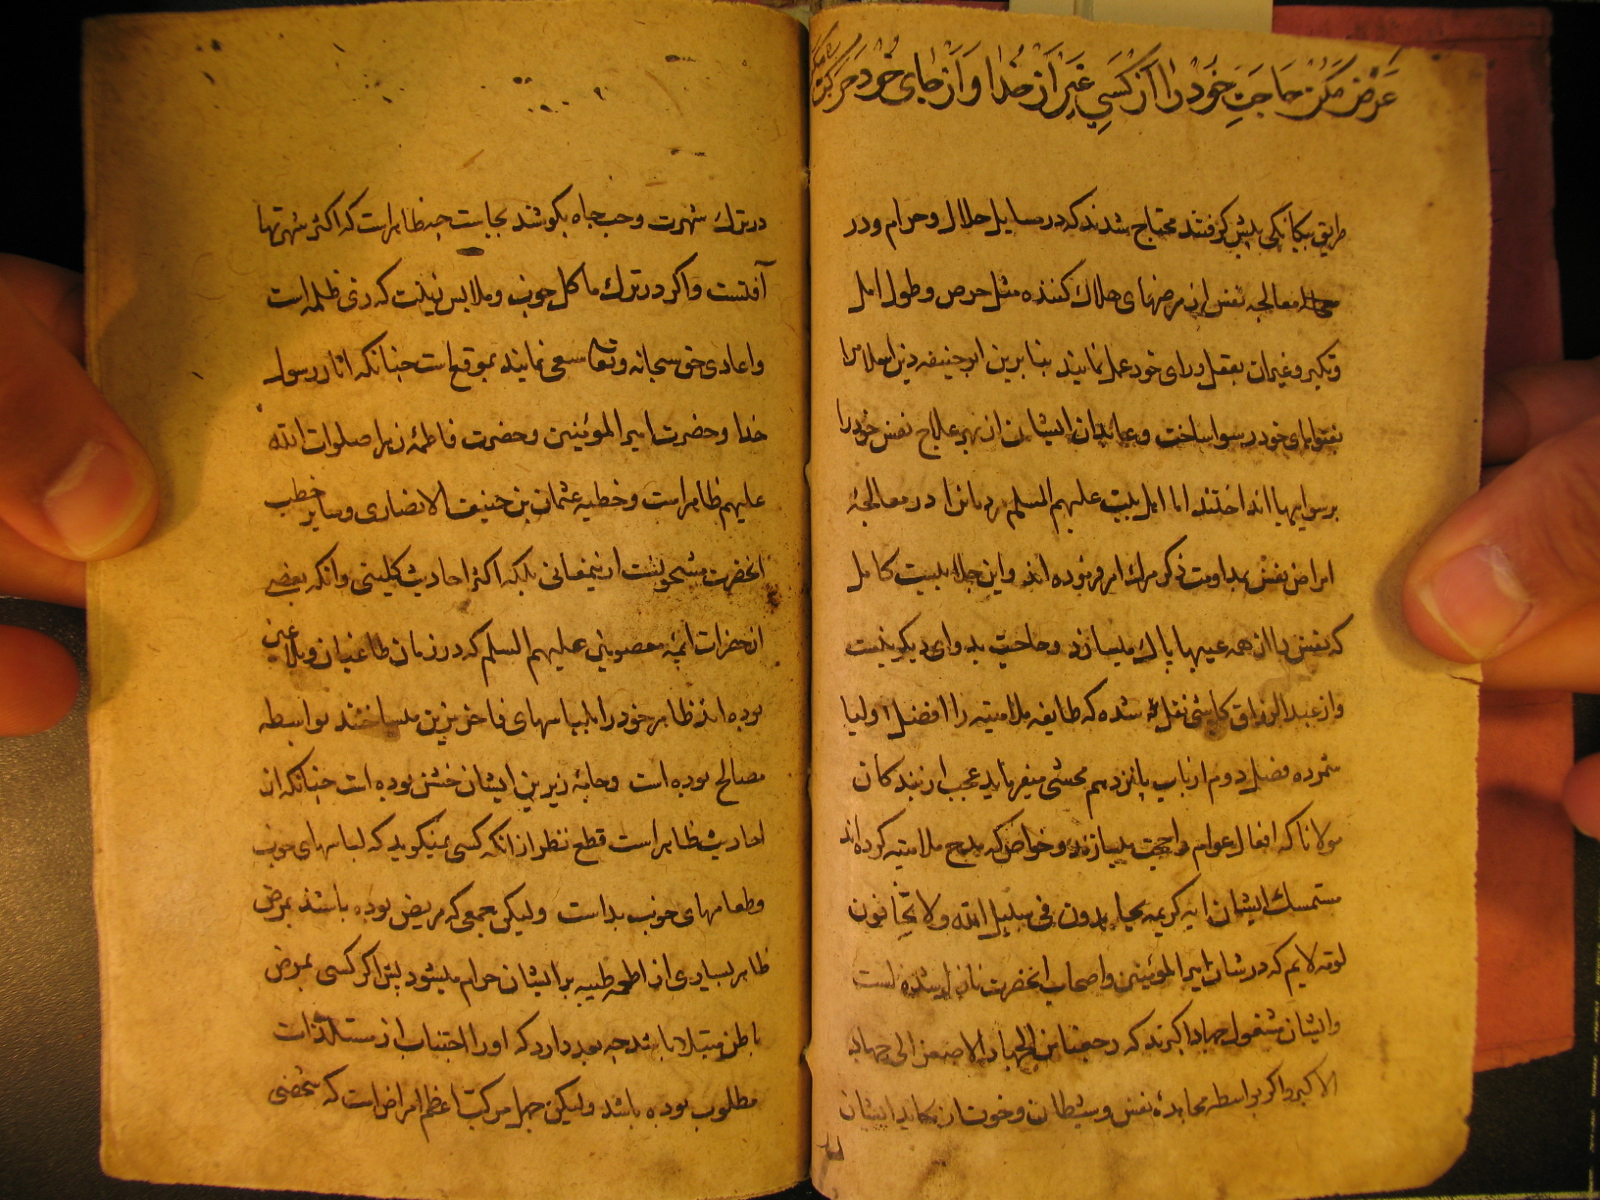 عرض مکن حاجت خود را از کسی غیر از خدا و از جای خود حرکت مکن
طریق بیکانکی پیش کرفتند محتاج شدند که در مسایل حلال و حرام و در
معالجه نفس از مرضهای هلاک کننده مثل حرص و طول امل
و تکبر و غیر ان بعقل و رای خود عمل نمایند بنا برین ابو حنیفه دین اسلام را
بفتواهای خود رسوا ساخت و ایشان از بهر علاج نفس خود را
برسوایهها انداختند اما اهل بیت علیهم السلم مردمانرا در معالجهٔ
امراض نفس بمداومت ذکر مرک امر فرموده اند و این جلابیست کامل
که نفس را از همه عیبها پاک میسازد و حاجت بدوای دیکر نیست
و از عبد الرزاق کاشی نقل شده که طایفه ملامتیه را افضل اولیا
شمرده فصل دوم از باب پانزدهم محشی میفرماید عجب از بندکان
مولانا که افعال عوام را حجت میسازند و خواص که مدح ملامتیه کرده اند
متمسک ایشان ایه کریمه یجاهدون فی سبیل الله و لا یخافون
لومة لایم که در شان امیر المؤمنین و اصحاب انحضرت نازل شده است
و ایشان مشغول جهاد اکبرند که رجعنا من الجهاد الاصغر الی جهاد
الاکبر و اکر بواسطه مجاهدهٔ نفس و شیطان و خوت ایشان
در ترک شهرت و حب جاه بکوشند بجاست چه ظاهر است که اکثر شهرتها
آفتست و اکر در ترک ماکل خوب و ملابس زینت که زی ظلمه است
و اعادی حق سبحانه و تعالی سعی نمایند بموقع است چنانکه اثار رسول
خدا و حضرت امیر المؤمنین و حضرت فاطمهٔ زهرا صلوات الله
علیهم ظاهر است و خطبه عثمان بن حنیف الانصاری و سایر خطب
انحضرت مشحونست از نیمعانی بلکه اکثر احادیث کلینی وانکه بعضی
از حضرات ائمه معصومین علیهم السلم که در زمان طاغیان و بلاعین
بوده اند ظاهر خود را بلباسهای فاخر مزین میساختند بواسطه
مصالح بوده است و جامه زیرین ایشان خشن بوده است چنانکه از
احادیث ظاهر است قطع نظر از انکه کسی نمیکوید که لباسهای خوب
و طعامهای خوب بد است ولیکن جمعی که مریض بوده باشند بمرض
ظاهر بسیاری از اطعمه طیبه بر ایشان حرام میشود پس اکر کسی بمرض
باطن مبتلا باشد چه بعد دارد که او را اجتناب از مستلذات
مطلوب بوده باشد ولیکن جهل مرکب اعظم امراض است که شخصی